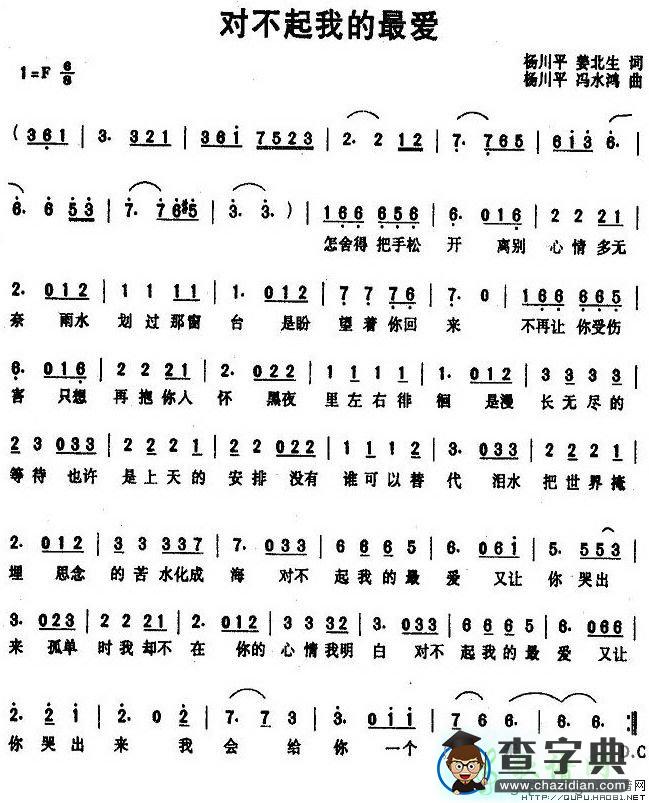 对不起我的最爱
1=F 6/8
杨川平 姜北生 词
杨川平 冯水鸿 曲
( 361 | 3. 321 | 361 7523 | 2. 2 12 | 7. 765 | 613 6. |
6. 6 53 | 7. 76#5 | 3. 3. ) | 166 656 | 6. 016 | 22 21 |
怎舍得 把手松 开 离别 心情多无
2. 012 | 11 11 | 1. 012 | 77 76 | 7. 0 | 166 665 |
奈 雨水 划过那窗 台 是盼 望着你回 来 不再让 你受伤
6. 016 | 22 21 | 2. 022 | 11 11 | 1. 013 | 33 33 |
害 只想 再抱你人 怀 黑夜 里左右徘 徊 是漫 长无尽的
23 033 | 22 21 | 22 022 | 11 12 | 3. 033 | 22 21 |
等待 也许 是上天的 安排 没有 谁可以替 代 泪水 把世界掩
2. 012 | 33 337 | 7. 033 | 66 65 | 6. 061 | 5. 553 |
埋 思念 的苦水化成 海 对不 起我的最 爱 又让 你 哭出
3. 023 | 22 21 | 2. 012 | 33 32 | 3. 033 | 66 65 | 6. 066 |
来 孤单 时我却不 在 你的 心情我明 白 对不 起我的最 爱 又让
2. 21 | 2. 02 | 7. 73 | 3. 011 | 7 66. | 6. 6. :||
你 哭出 来 我 会 给 你 一个
D.C
查字典
www.chazidian.com